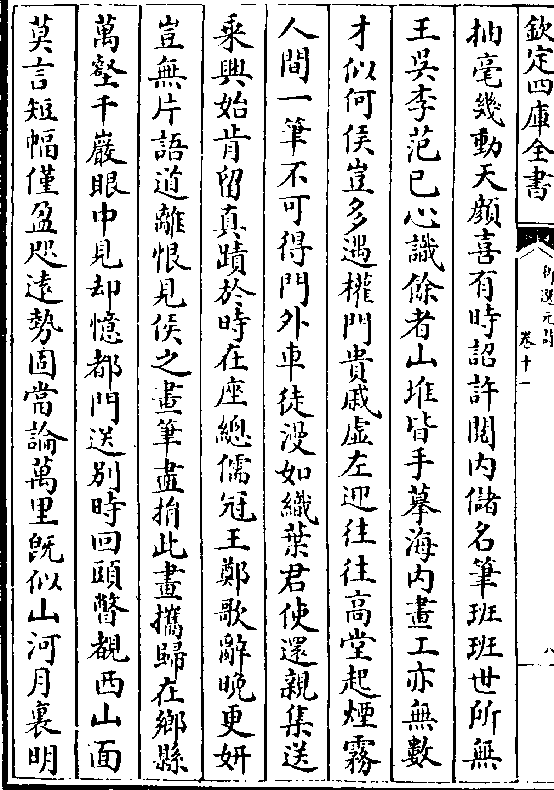 欽定四庫全書
御選元詩
卷十一
八
抽毫幾動天顔喜有時詔許閱内儲名筆班班世所無
王吳李范已心識餘者山堆皆手摹海内畫工亦無數
才似何侯豈多遇權門貴戚虚左迎往往高堂起煙霧
人間一筆不可得門外車徒漫如織葉君使還親集送
乘興始肯留真蹟於時在座總儒冠王鄭歌辭晚更妍
豈無片語道離恨見侯之畫筆盡捐此畫攜歸在鄉縣
萬壑千巖眼中見却憶都門送别時回頭瞥覩西山面
莫言短幅僅盈咫逺勢固當論萬里旣似山河月裏明